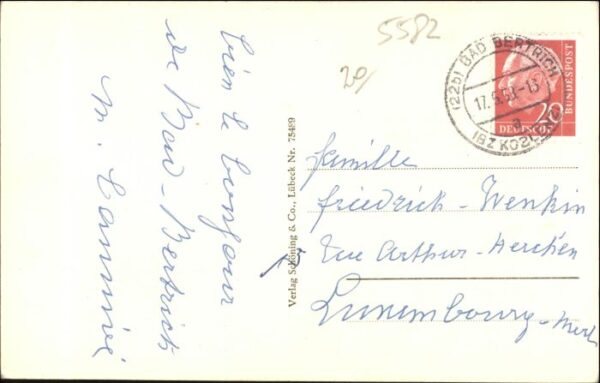 5582
20/
bien le bonjour
de Bad-Bertrich
M.
Verlag Schöning & Co., Lübeck Nr. 75489
(22b) BAD BERTRICH
17.5.58.-13
a
(BZ KOBLENZ)
20
DEUTSCHE
BUNDESPOST
famille
Friedrich-Wenkin
Rue Arthur-Herchen
Luxembourg-Merl